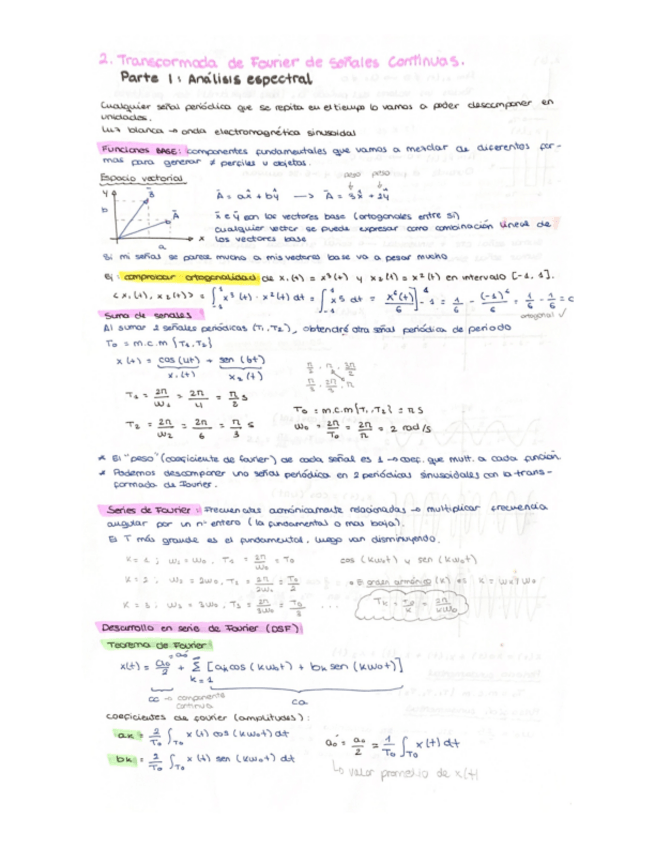 2. Transformada de Fourier de Señales Continuas.
Parte 1: Análisis espectral
Cualquier señal periódica que se repita en el tiempo lo vamos a poder descomponer en
unidades.
Luz blanca → onda electromagnética sinusoidal
Funciones BASE: componentes fundamentales que vamos a mezclar de diferentes for-
mas para generar ≠ perfiles u objetos.
Espacio vectorial
peso peso
y
b
B
A
a
x
Ā = ax̂ + bŷ → Ā = 3x̂ + 1ŷ
x̂ e ŷ son los vectores base (ortogonales entre sí)
cualquier vector se puede expresar como combinación lineal de
los vectores base
Si mi señal se parece mucho a mis vectores base va a pesar mucho
Ej: comprobar ortogonalidad de x₁(t) = x³(t) y x₂(t) = x²(t) en intervalo [-1, 1].
<x₁(t), x₂(t)> = ∫₋₁¹ x³(t) · x²(t) dt = ∫₋₁¹ x⁵ dt = x⁶(t)/6 ]₋₁¹ = 1/6 - (-1)⁶/6 = 1/6 - 1/6 = 0
ortogonal ✓
Suma de señales
Al sumar 2 señales periódicas (T₁, T₂), obtendré otra señal periódica de periodo
T₀ = m.c.m {T₁, T₂}
x(t) = cos(4t) + sen(6t)
x₁(t) x₂(t)
T₁ = 2π/ω₁ = 2π/4 = π/2 s
T₂ = 2π/ω₂ = 2π/6 = π/3 s
T₀ = m.c.m {T₁, T₂} = π s
ω₀ = 2π/T₀ = 2π/π = 2 rad/s
* El "peso" (coeficiente de fourier) de cada señal es 1 → coef. que mult. a cada función
* Podemos descomponer una señal periódica en 2 periódicas sinusoidales con la trans-
formada de Fourier.
Series de Fourier: Frecuencias armónicamente relacionadas → multiplicar frecuencia
angular por un nº entero (la fundamental o mas baja).
El T más grande es el fundamental, luego van disminuyendo.
K = 1; ω₁ = ω₀, T₁ = 2π/ω₀ = T₀
cos(kω₀t) y sen(kω₀t)
K = 2; ω₂ = 2ω₀, T₂ = 2π/2ω₀ = T₀/2
El orden armónico (K) es K = ωk/ω₀
K = 3; ω₃ = 3ω₀, T₃ = 2π/3ω₀ = T₀/3 ...
Tk = T₀/k = 2π/kω₀
Desarrollo en serie de Fourier (DSF)
Teorema de Fourier
x(t) = a₀/2 + Σ [ak cos(kω₀t) + bk sen(kω₀t)]
k=1
cc → componente
continua
ca
coeficientes de fourier (amplitudes):
ak = 2/T₀ ∫T₀ x(t) cos(kω₀t) dt
a₀' = a₀/2 = 1/T₀ ∫T₀ x(t) dt
bk = 2/T₀ ∫T₀ x(t) sen(kω₀t) dt
↳ valor promedio de x(t)